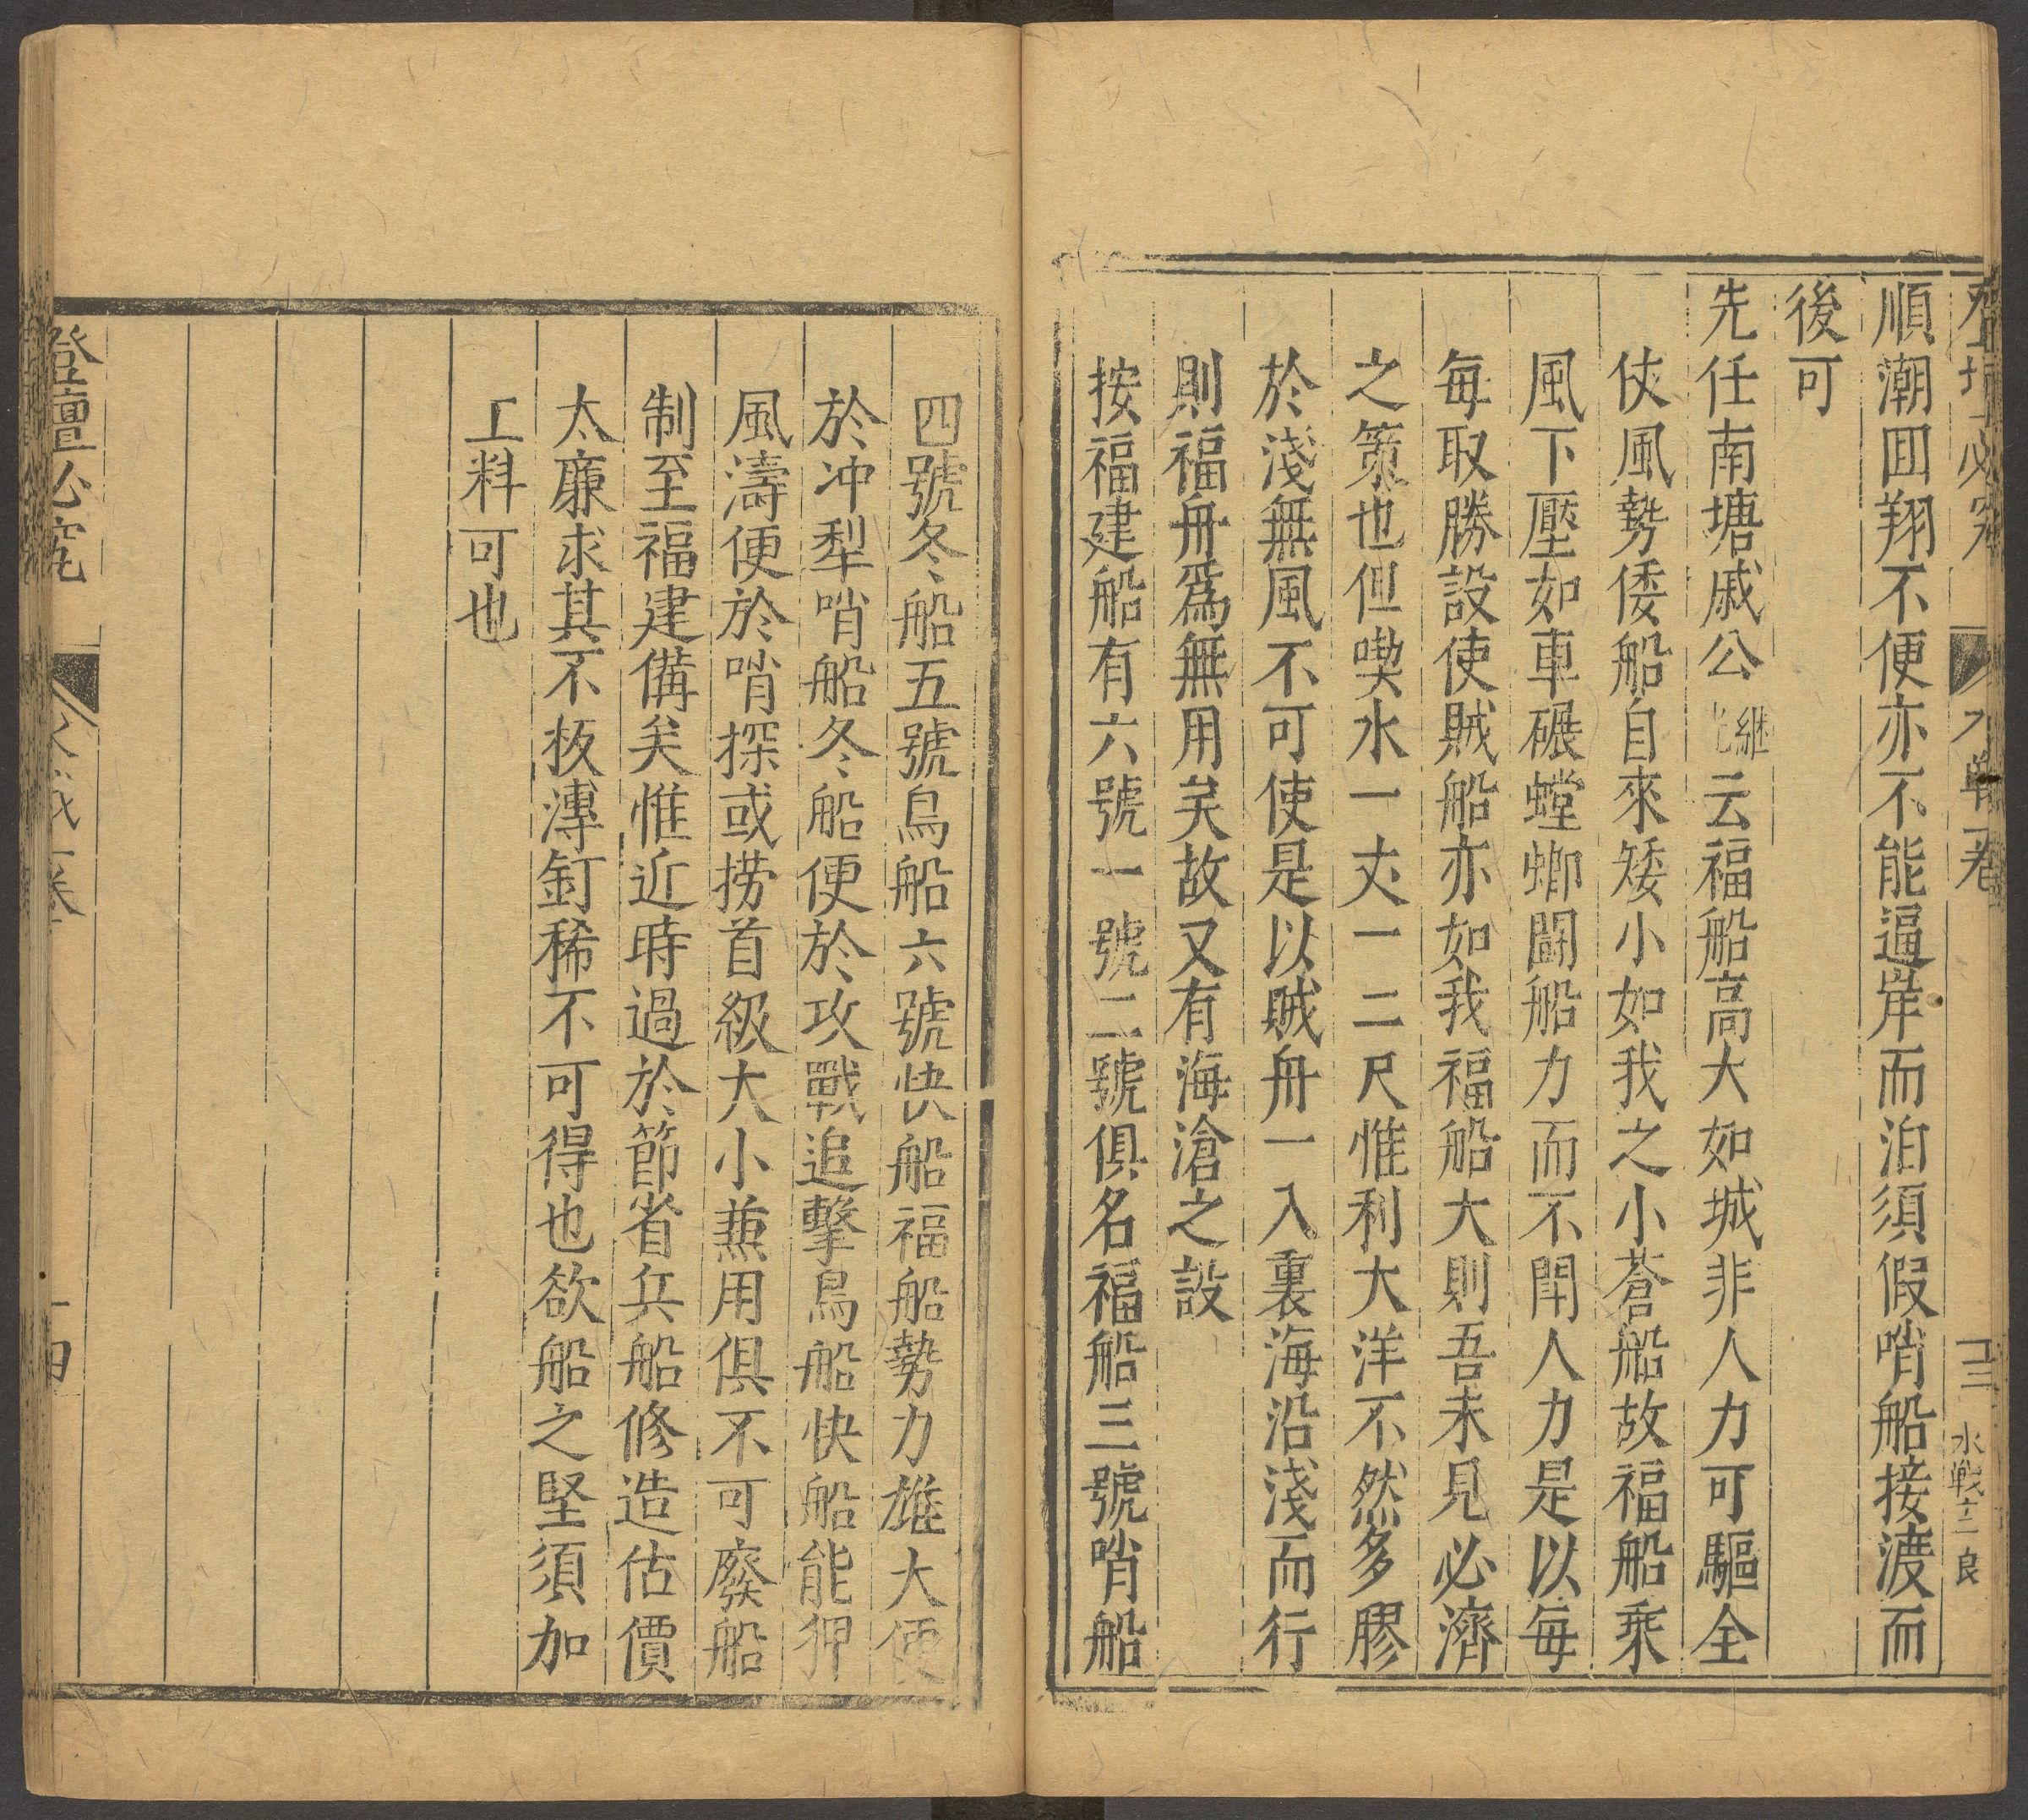 順潮囬翔不便亦不能逼岸而泊須假哨船接渡而
後可
先任南塘戚公繼光云福船高大如城非人力可驅全
仗風勢倭船自來矮小如我之小蒼船故福船乘
風下壓如車碾螳螂鬬船力而不鬬人力是以每
每取勝設使賊船亦如我福船大則吾未見必濟
之策也但喫水一丈一二尺惟利大洋不然多膠
於淺無風不可使是以賊舟一入裏海沿淺而行
則福舟爲無用矣故又有海滄之設
按福建船有六號一號二號俱名福船三號哨船
水戰十二 良
四號冬船五號鳥船六號快船福船勢力雄大便
於冲犁哨船冬船便於攻戰追擊鳥船快船能狎
風濤便於哨探或撈首級大小兼用俱不可廢船
制至福建備矣惟近時過於節省兵船修造估價
太廉求其不板溥釘稀不可得也欲船之堅須加
工料可也
登壇必究